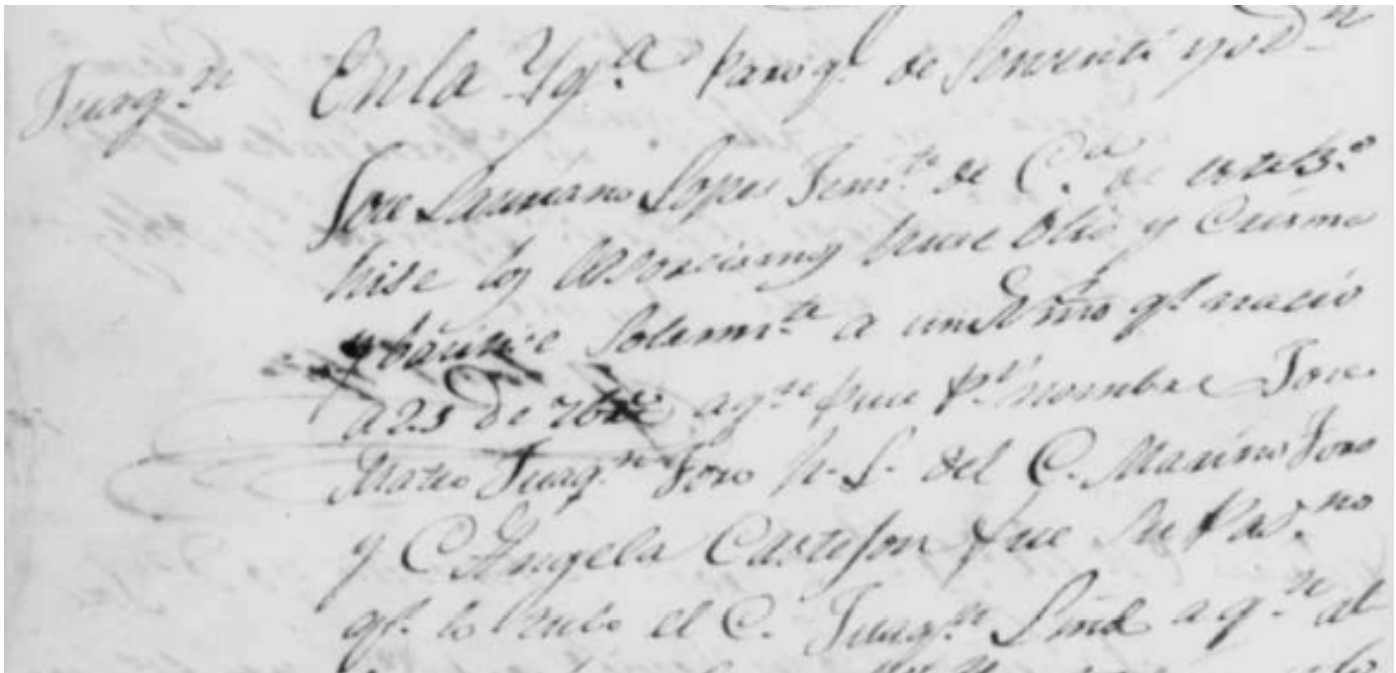 Juaq.n En la Yg.a Parroq.l de Sensenti yo D.n
Jose Lauriano Lopes Ten.te de C.a de este
hise los exsorcismos puse Olio y Crisma
y bautise Solemn.te a un Niño q.e nacio
a 25 de 7bre a q.n puse p.r nombre Jose
Mateo Juaq.n Toro h. L. del C. Maximo Toro
y C. Angela Castejon fue Su Pad.no
q.e lo tubo el C. Juaq.n a q.n ad